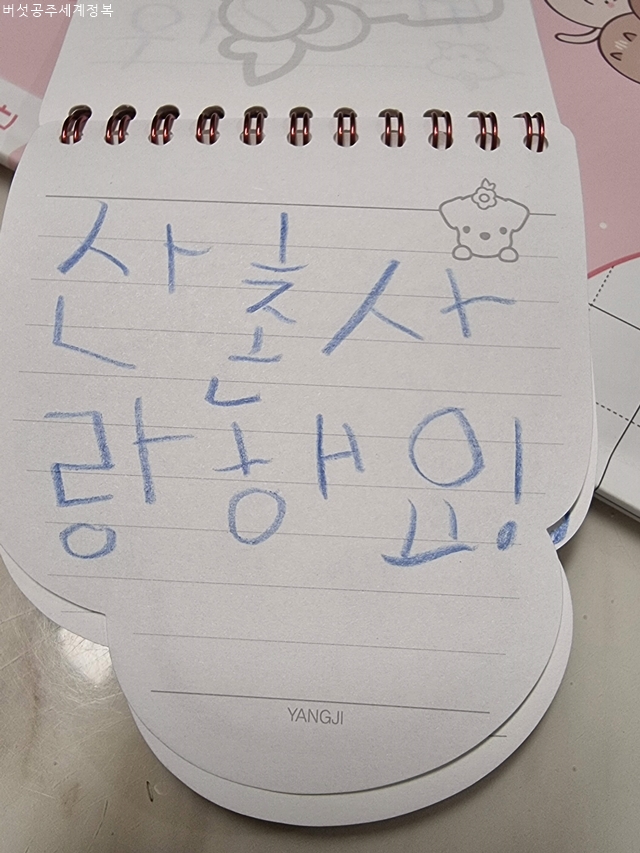 버섯공주세계정복
산촌사
랑해요!
YANGJI